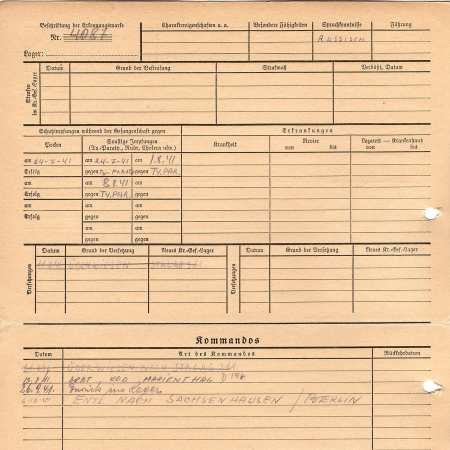 Beschriftung der Erkennungsmarke
Nr. 4087
Lager:
Charaktereigenschaften u. a.
Besondere Fähigkeiten
Sprachkenntnisse
RUSSISCH
Führung
Strafen im Kr.-Gef.-Lager
Datum
Grund der Bestrafung
Strafmaß
Verbüßt, Datum
Schutzimpfungen während der Gefangenschaft gegen
Erkrankungen
Pocken
Sonstige Impfungen
(Ty.-Paraty., Ruhr, Cholera usw.)
Krankheit
Revier
von bis
Lazarett — Krankenhaus
von bis
am 24-7-41 am 24-7-41 am 1.8.41
Erfolg gegen gegen TY.PAR.
am am 8.8.41 am
Erfolg gegen TY.PAR. gegen
am am am
Erfolg gegen gegen
am am
gegen gegen
Versetzungen
Datum Grund der Versetzung Neues Kr.-Gef.-Lager
ÜBERWIESEN STALAG
Versetzungen
Datum Grund der Versetzung Neues Kr.-Gef.-Lager
Kommandos
Datum Art des Kommandos Rückkehrdatum
ÜBERWIESEN NACH STALAG
MARIENTHAL
26.9.41. zurück ins Lager
6.10.41 ENTL NACH SACHSENHAUSEN / BERLIN